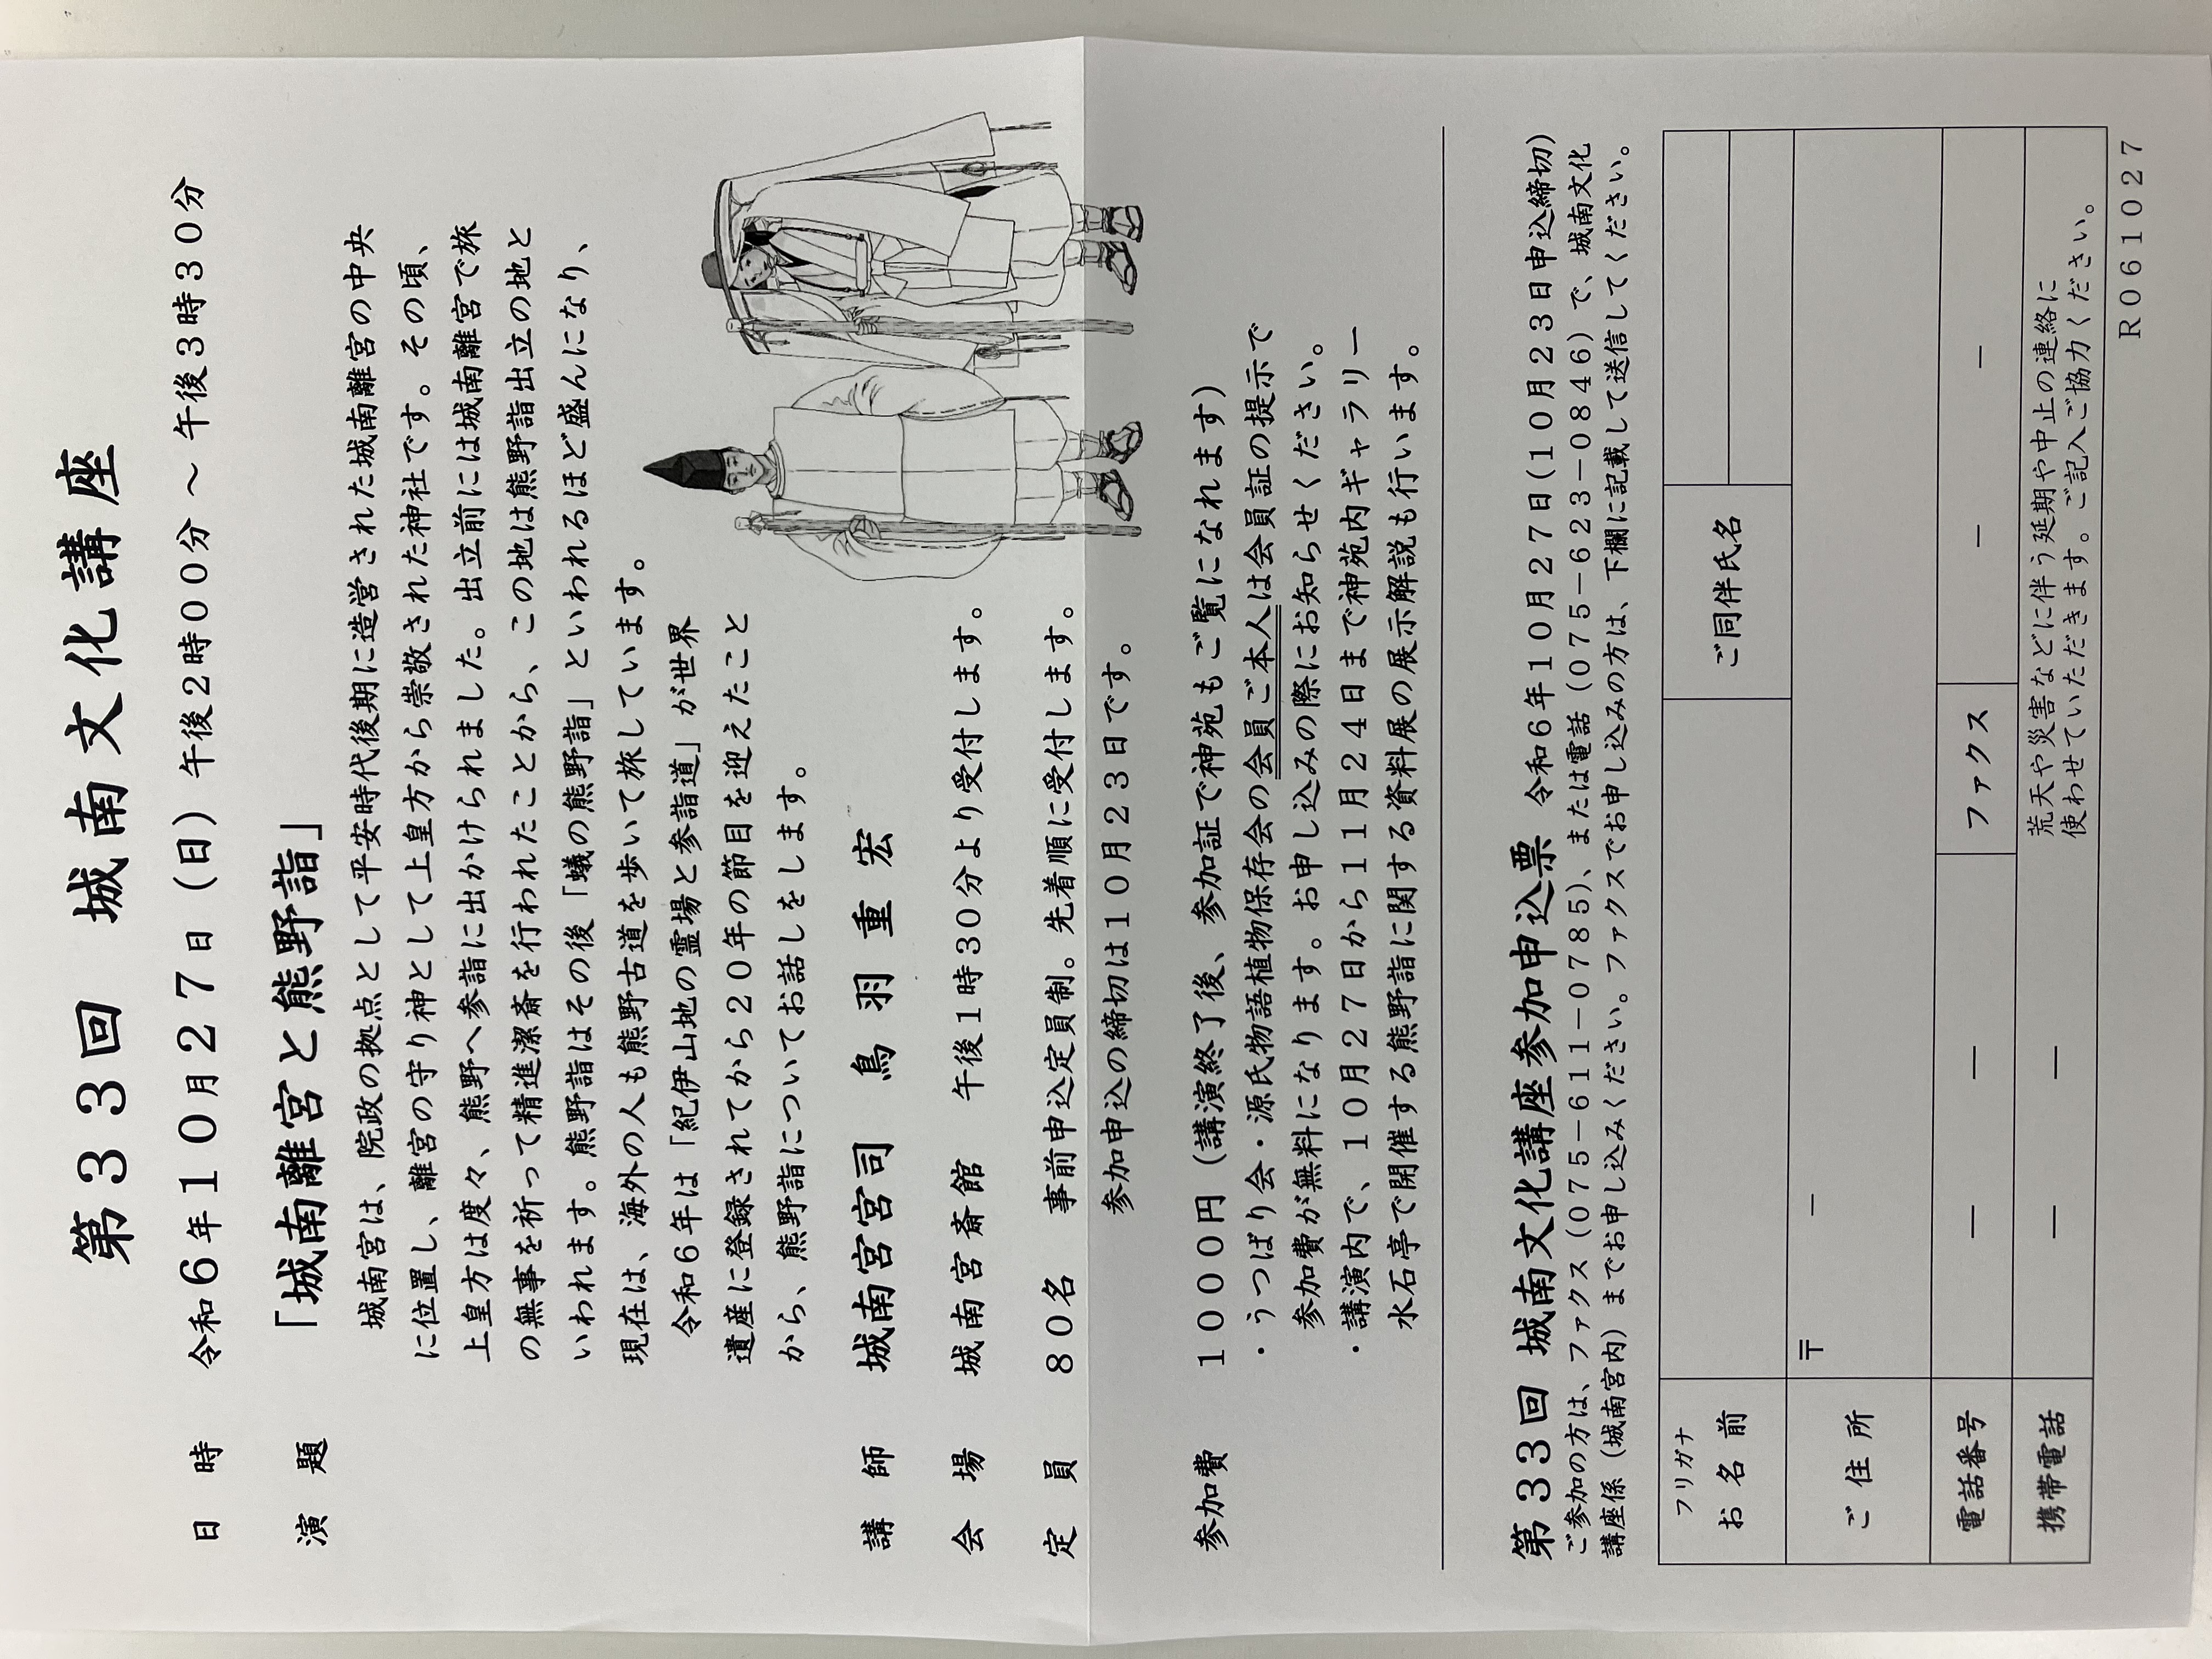 第３３回　城南文化講座
日　時　令和６年１０月２７日（日）午後２時００分～午後３時３０分
演　題　「城南離宮と熊野詣」
城南宮は、院政の拠点として平安時代後期に造営された城南離宮の中央
に位置し、離宮の守り神として上皇方から崇敬された神社です。その頃、
上皇方は度々、熊野へ参詣に出かけられました。出立前には城南離宮で旅
の無事を祈って精進潔斎を行われたことから、この地は熊野詣出立の地と
いわれます。熊野詣はその後「蟻の熊野詣」といわれるほど盛んになり、
現在は、海外の人も熊野古道を歩いて旅しています。
令和６年は「紀伊山地の霊場と参詣道」が世界
遺産に登録されてから２０年の節目を迎えたこと
から、熊野詣についてお話しをします。
講　師　城南宮宮司　鳥羽重宏
会　場　城南宮斎館　午後１時３０分より受付します。
定　員　８０名　事前申込定員制。先着順に受付します。
参加申込の締切は１０月２３日です。
参加費　１０００円（講演終了後、参加証で神苑もご覧になれます）
・うつぼり会・源氏物語植物保存会の会員ご本人は会員証の提示で
参加費が無料になります。お申し込みの際にお知らせください。
・講演内で、１０月２７日から１１月２４日まで神苑内ギャラリー
水石亭で開催する熊野詣に関する資料展の展示解説も行います。
第３３回　城南文化講座参加申込票　令和６年１０月２７日（１０月２３日申込締切）
ご参加の方は、ファクス（０７５－６１１－０７８５）、または電話（０７５－６２３－０８４６）で、城南文化
講座係（城南宮内）までお申し込みください。ファクスでお申し込みの方は、下欄に記載して送信してください。
フリガナ
お名前　ご同伴氏名
ご住所　〒　－
電話番号　－　－　ファクス　－　－
携帯電話　－　－　荒天や災害などに伴う延期や中止の連絡に
使わせていただきます。ご記入ご協力ください。
Ｒ０６１０２７